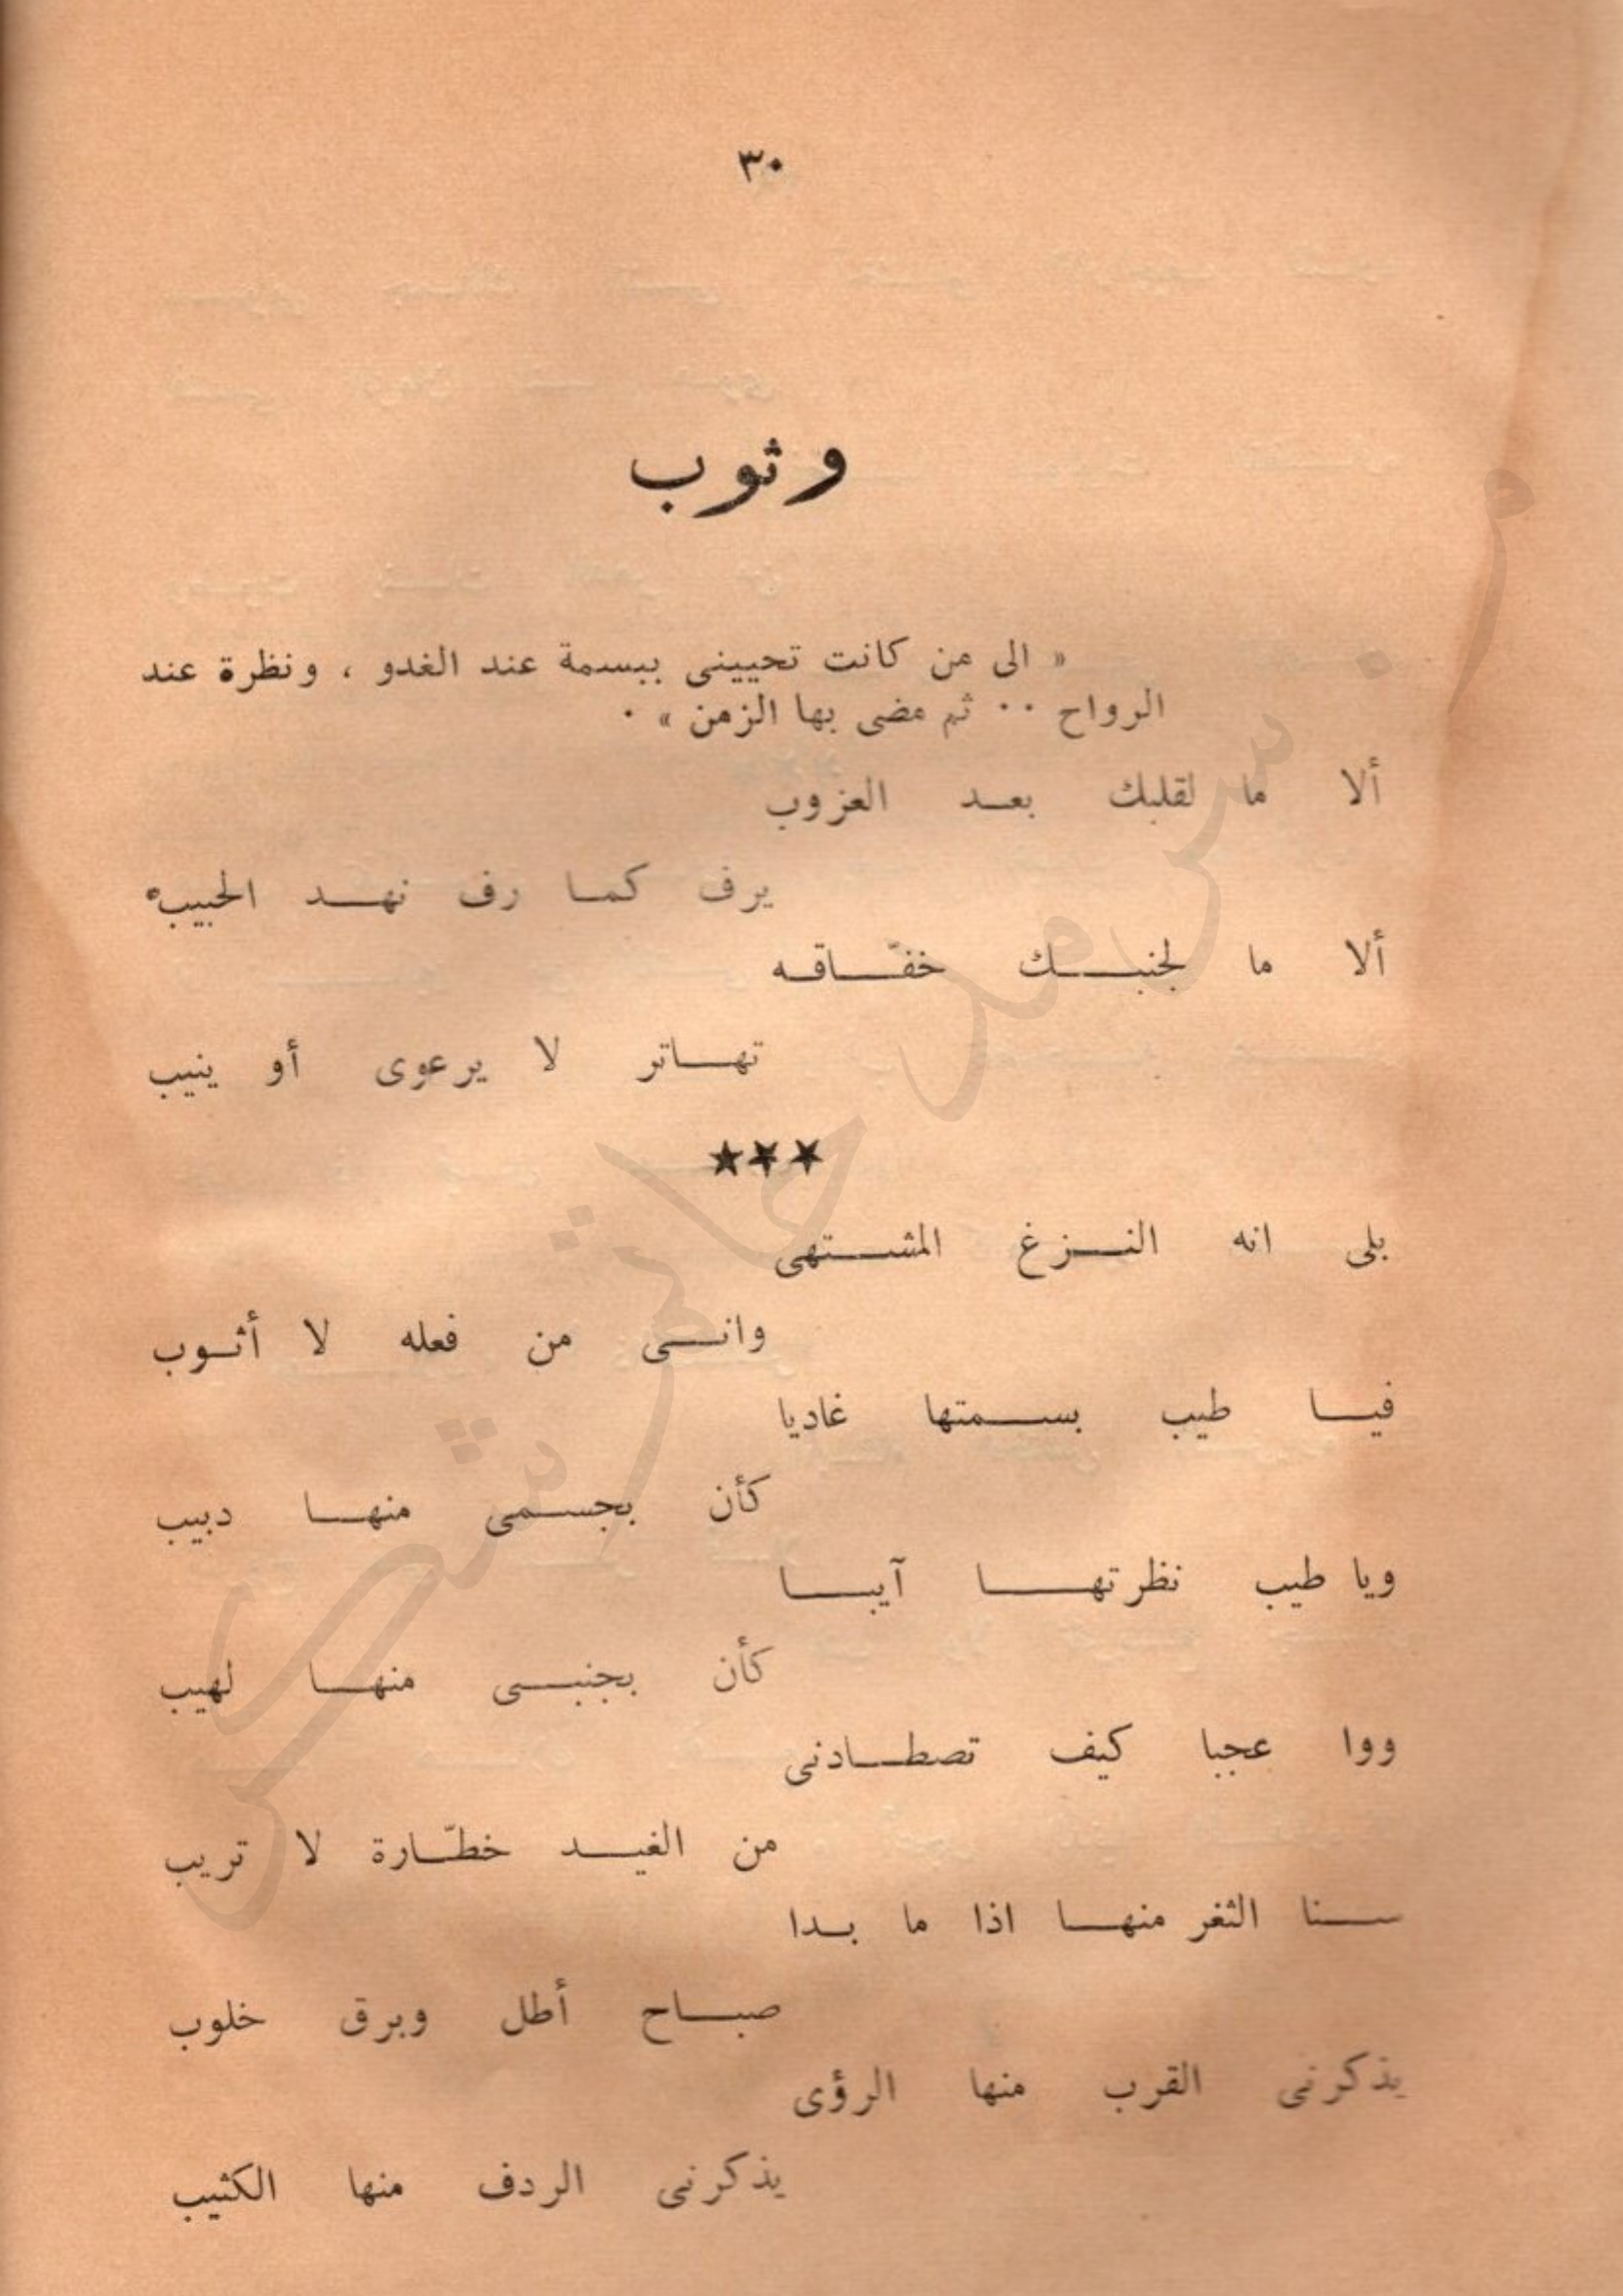 ٣٠
وثوب
« الى من كانت تحييني ببسمة عند الغدو ، ونظرة عند
الرواح ٠٠ ثم مضى بها الزمن » ٠
ألا ما لقلبك بعد العزوب
يرف كما رف نهد الحبيب
ألا ما لجنبك خفّاقه
تهاتر لا يرعوى أو ينيب
★★★
بلى انه النزغ المشتهى
وانى من فعله لا أثوب
فيا طيب بسمتها غاديا
كأن بجسمى منها دبيب
ويا طيب نظرتها آيبا
كأن بجنبى منها لهيب
ووا عجبا كيف تصطادنى
من الغيد خطّارة لا تريب
سنا الثغر منها اذا ما بدا
صباح أطل وبرق خلوب
يذكرنى القرب منها الرؤى
يذكرنى الردف منها الكثيب